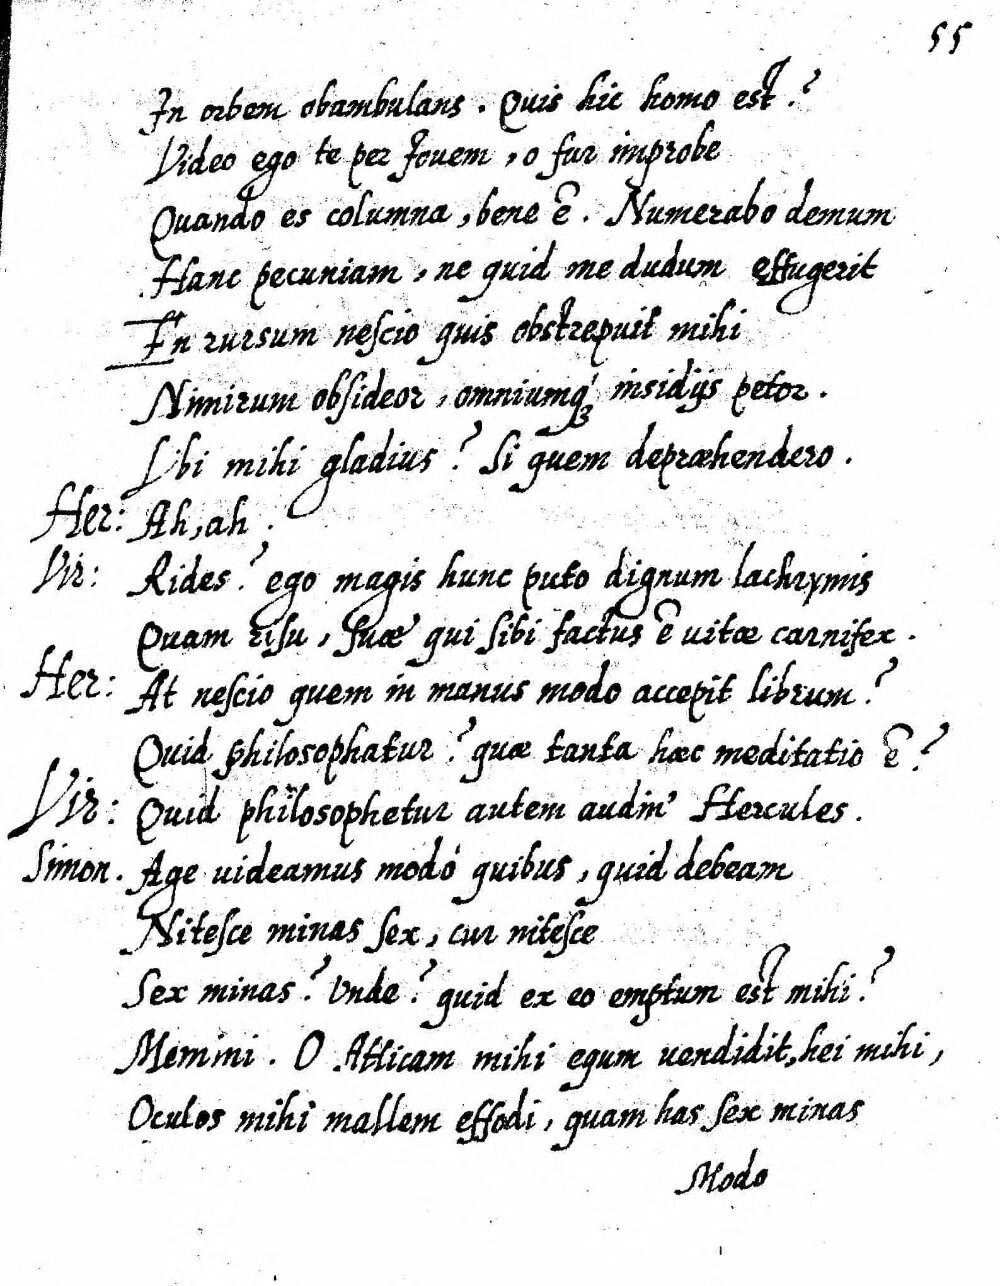 55
In orbem obambulans. Quis hic homo est?
Video ego te per Jouem, o fur improbe
Quando es columna, bene ē. Numerabo demum
Hanc pecuniam, ne quid me dudum effugerit
En rursum neſcio quis obstrepuit mihi
Nimirum obſideor, omniumqꝫ insidijs petor.
Vbi mihi gladius? Si quem depræhendero.
Her: Ah, ah.
Vir: Rides? ego magis hunc puto dignum lachrymis
Quam riſu, ſuæ qui ſibi factus ē uitæ carnifex.
Her: At neſcio quem in manus modo accepit librum?
Quid philosophatur? quæ tanta hæc meditatio ē?
Vir: Quid philosophetur autem Hercules.
Simon. Age uideamus modó quibus, quid debeam
Niteſce minas ſex, cur niteſce
Sex minas? Vnde? quid ex eo emptum est mihi?
Memini. O Atticam mihi equm uendidit, hei mihi,
Oculos mihi mallem effodi, quam has ſex minas
Modo